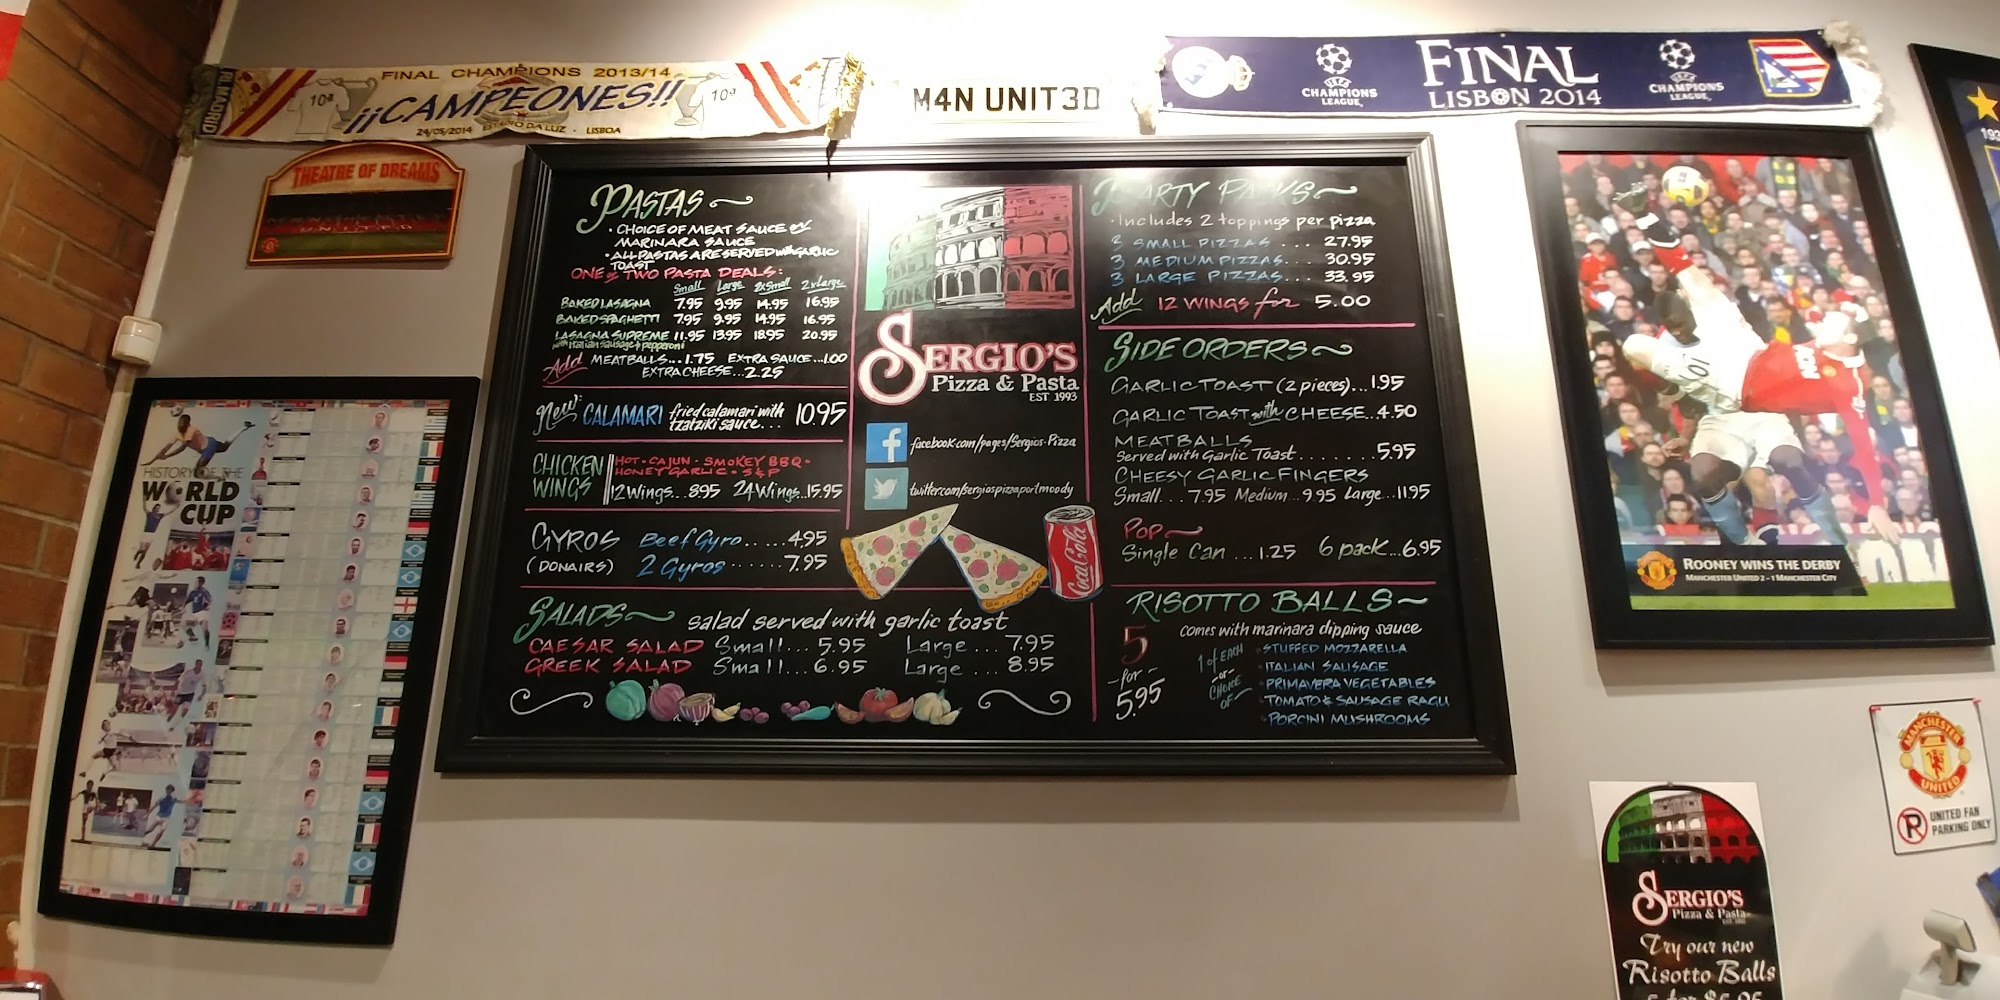 FINAL CHAMPIONS 2013/14
¡¡CAMPEONES!!
24/05/2014 ESTADIO DA LUZ · LISBOA
10ª
10ª
MADRID
M4N UNIT3D
UEFA
CHAMPIONS
LEAGUE
FINAL
LISBON 2014
UEFA
CHAMPIONS
LEAGUE
THEATRE OF DREAMS
UNITED
HISTORY OF THE
WORLD
CUP
PASTAS
· CHOICE OF MEAT SAUCE or
MARINARA SAUCE
· ALL PASTAS ARE SERVED with GARLIC
TOAST
ONE or TWO PASTA DEALS:
Small Large 2xSmall 2xLarge
BAKED LASAGNA 7.95 9.95 14.95 16.95
BAKED SPAGHETTI 7.95 9.95 14.95 16.95
LASAGNA SUPREME 11.95 13.95 18.95 20.95
with Italian sausage & pepperoni
Add MEATBALLS...1.75 EXTRA SAUCE...1.00
EXTRA CHEESE...2.25
New: CALAMARI fried calamari with
tzatziki sauce... 10.95
CHICKEN
WINGS
HOT · CAJUN · SMOKEY BBQ ·
HONEY GARLIC · S&P
12 Wings...8.95 24 Wings...15.95
GYROS Beef Gyro......4.95
(DONAIRS) 2 Gyros.......7.95
SALADS salad served with garlic toast
CAESAR SALAD Small... 5.95 Large... 7.95
GREEK SALAD Small... 6.95 Large... 8.95
SERGIO'S
Pizza & Pasta
EST 1993
facebook.com/pages/Sergios-Pizza
twitter.com/sergiospizzaportmoody
Coca-Cola
PARTY PACKS
· Includes 2 toppings per pizza
3 SMALL PIZZAS ... 27.95
3 MEDIUM PIZZAS... 30.95
3 LARGE PIZZAS... 33.95
Add 12 WINGS for 5.00
SIDE ORDERS
GARLIC TOAST (2 pieces)...1.95
GARLIC TOAST with CHEESE...4.50
MEATBALLS
Served with Garlic Toast........5.95
CHEESY GARLIC FINGERS
Small...7.95 Medium...9.95 Large...11.95
POP
Single Can ...1.25 6 pack...6.95
RISOTTO BALLS
comes with marinara dipping sauce
5
-for-
5.95
1 of EACH
-or-
CHOICE
OF
· STUFFED MOZZARELLA
· ITALIAN SAUSAGE
· PRIMAVERA VEGETABLES
· TOMATO & SAUSAGE RAGU
· PORCINI MUSHROOMS
ROONEY WINS THE DERBY
MANCHESTER UNITED 2 - 1 MANCHESTER CITY
MANCHESTER
UNITED
P UNITED FAN
PARKING ONLY
SERGIO'S
Pizza & Pasta
Try our new
Risotto Balls
5 for $5.95